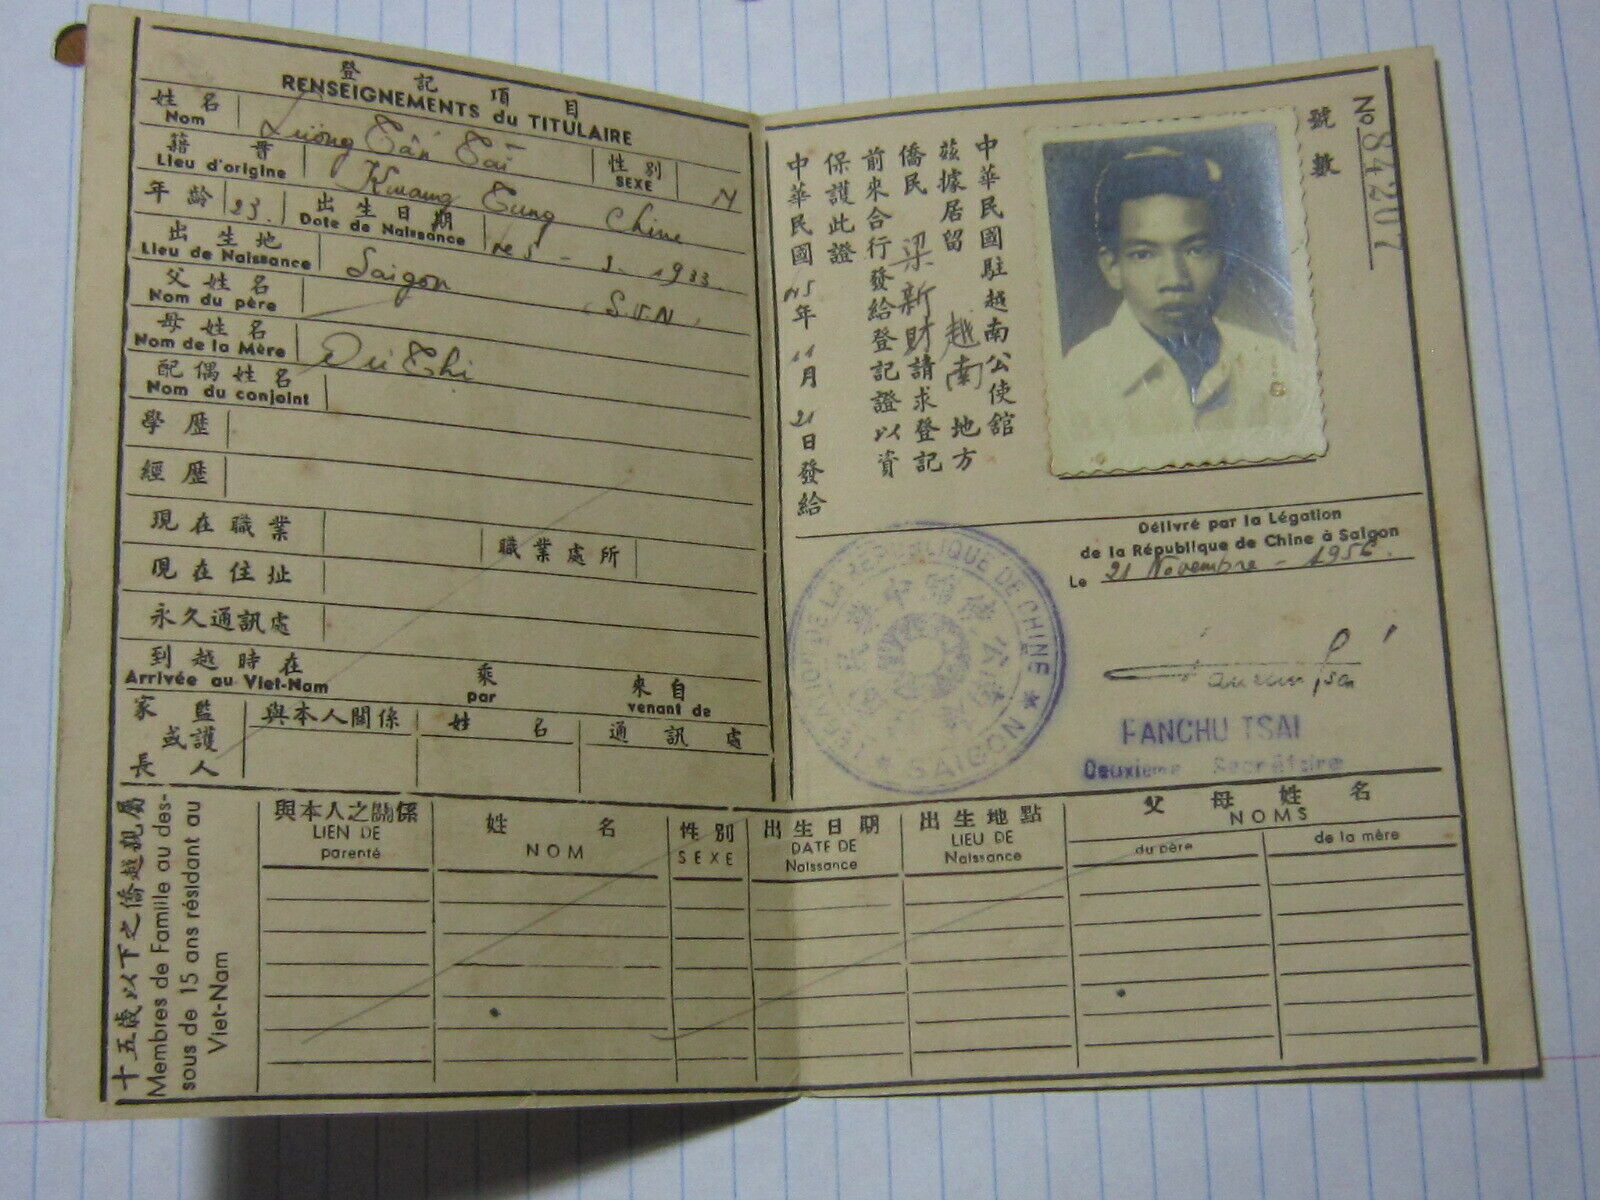 登記項目
RENSEIGNEMENTS du TITULAIRE
姓名
Nom
Lương Tấn Tài
性別
SEXE
M
籍貫
Lieu d'origine
Kwang Tung Chine
年齡
23.
出生日期
Date de Naissance
1933
出生地
Lieu de Naissance
Saigon S.V.N.
父姓名
Nom du père
母姓名
Nom de la Mère
Thi
配偶姓名
Nom du conjoint
學歷
經歷
現在職業
職業處所
現在住址
永久通訊處
到越時在
Arrivée au Viet-Nam
乘
par
來自
venant de
家長或監護人
與本人關係
姓名
通訊處
No 84207
號數
中華民國駐越南公使館
茲據居留越南地方
僑民梁新財請求登記
前來合行發給登記證以資
保護此證
中華民國45年11月21日發給
Délivré par la Légation
de la République de Chine à Saigon
Le 21 Novembre - 1956.
LEGATION DE LA REPUBLIQUE DE CHINE
SAIGON
FANCHU TSAI
Deuxieme Secrétaire
十五歲以下之僑越親屬
Membres de Famille au des-
sous de 15 ans résidant au
Viet-Nam
與本人之關係
LIEN DE
parenté
姓名
NOM
性別
SEXE
出生日期
DATE DE
Naissance
出生地點
LIEU DE
Naissance
父母姓名
NOMS
du père
de la mère